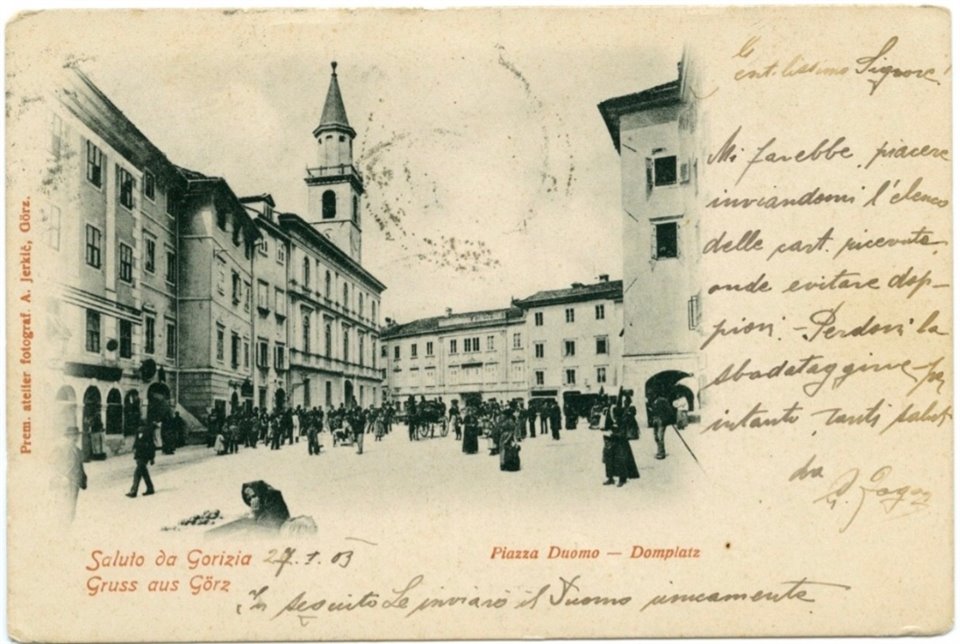 Prem. atelier fotograf. A. Jerkič, Görz.
Gentilissimo Signore!
Mi farebbe piacere
inviandomi l'elenco
delle cart. ricevute
onde evitare dop-
pioni. - Perdoni la
sbadataggine - per
intanto tanti saluti
da
Saluto da Gorizia 27.1.03
Gruss aus Görz
Piazza Duomo — Domplatz
In seguito Le inviarò il Duomo unicamente